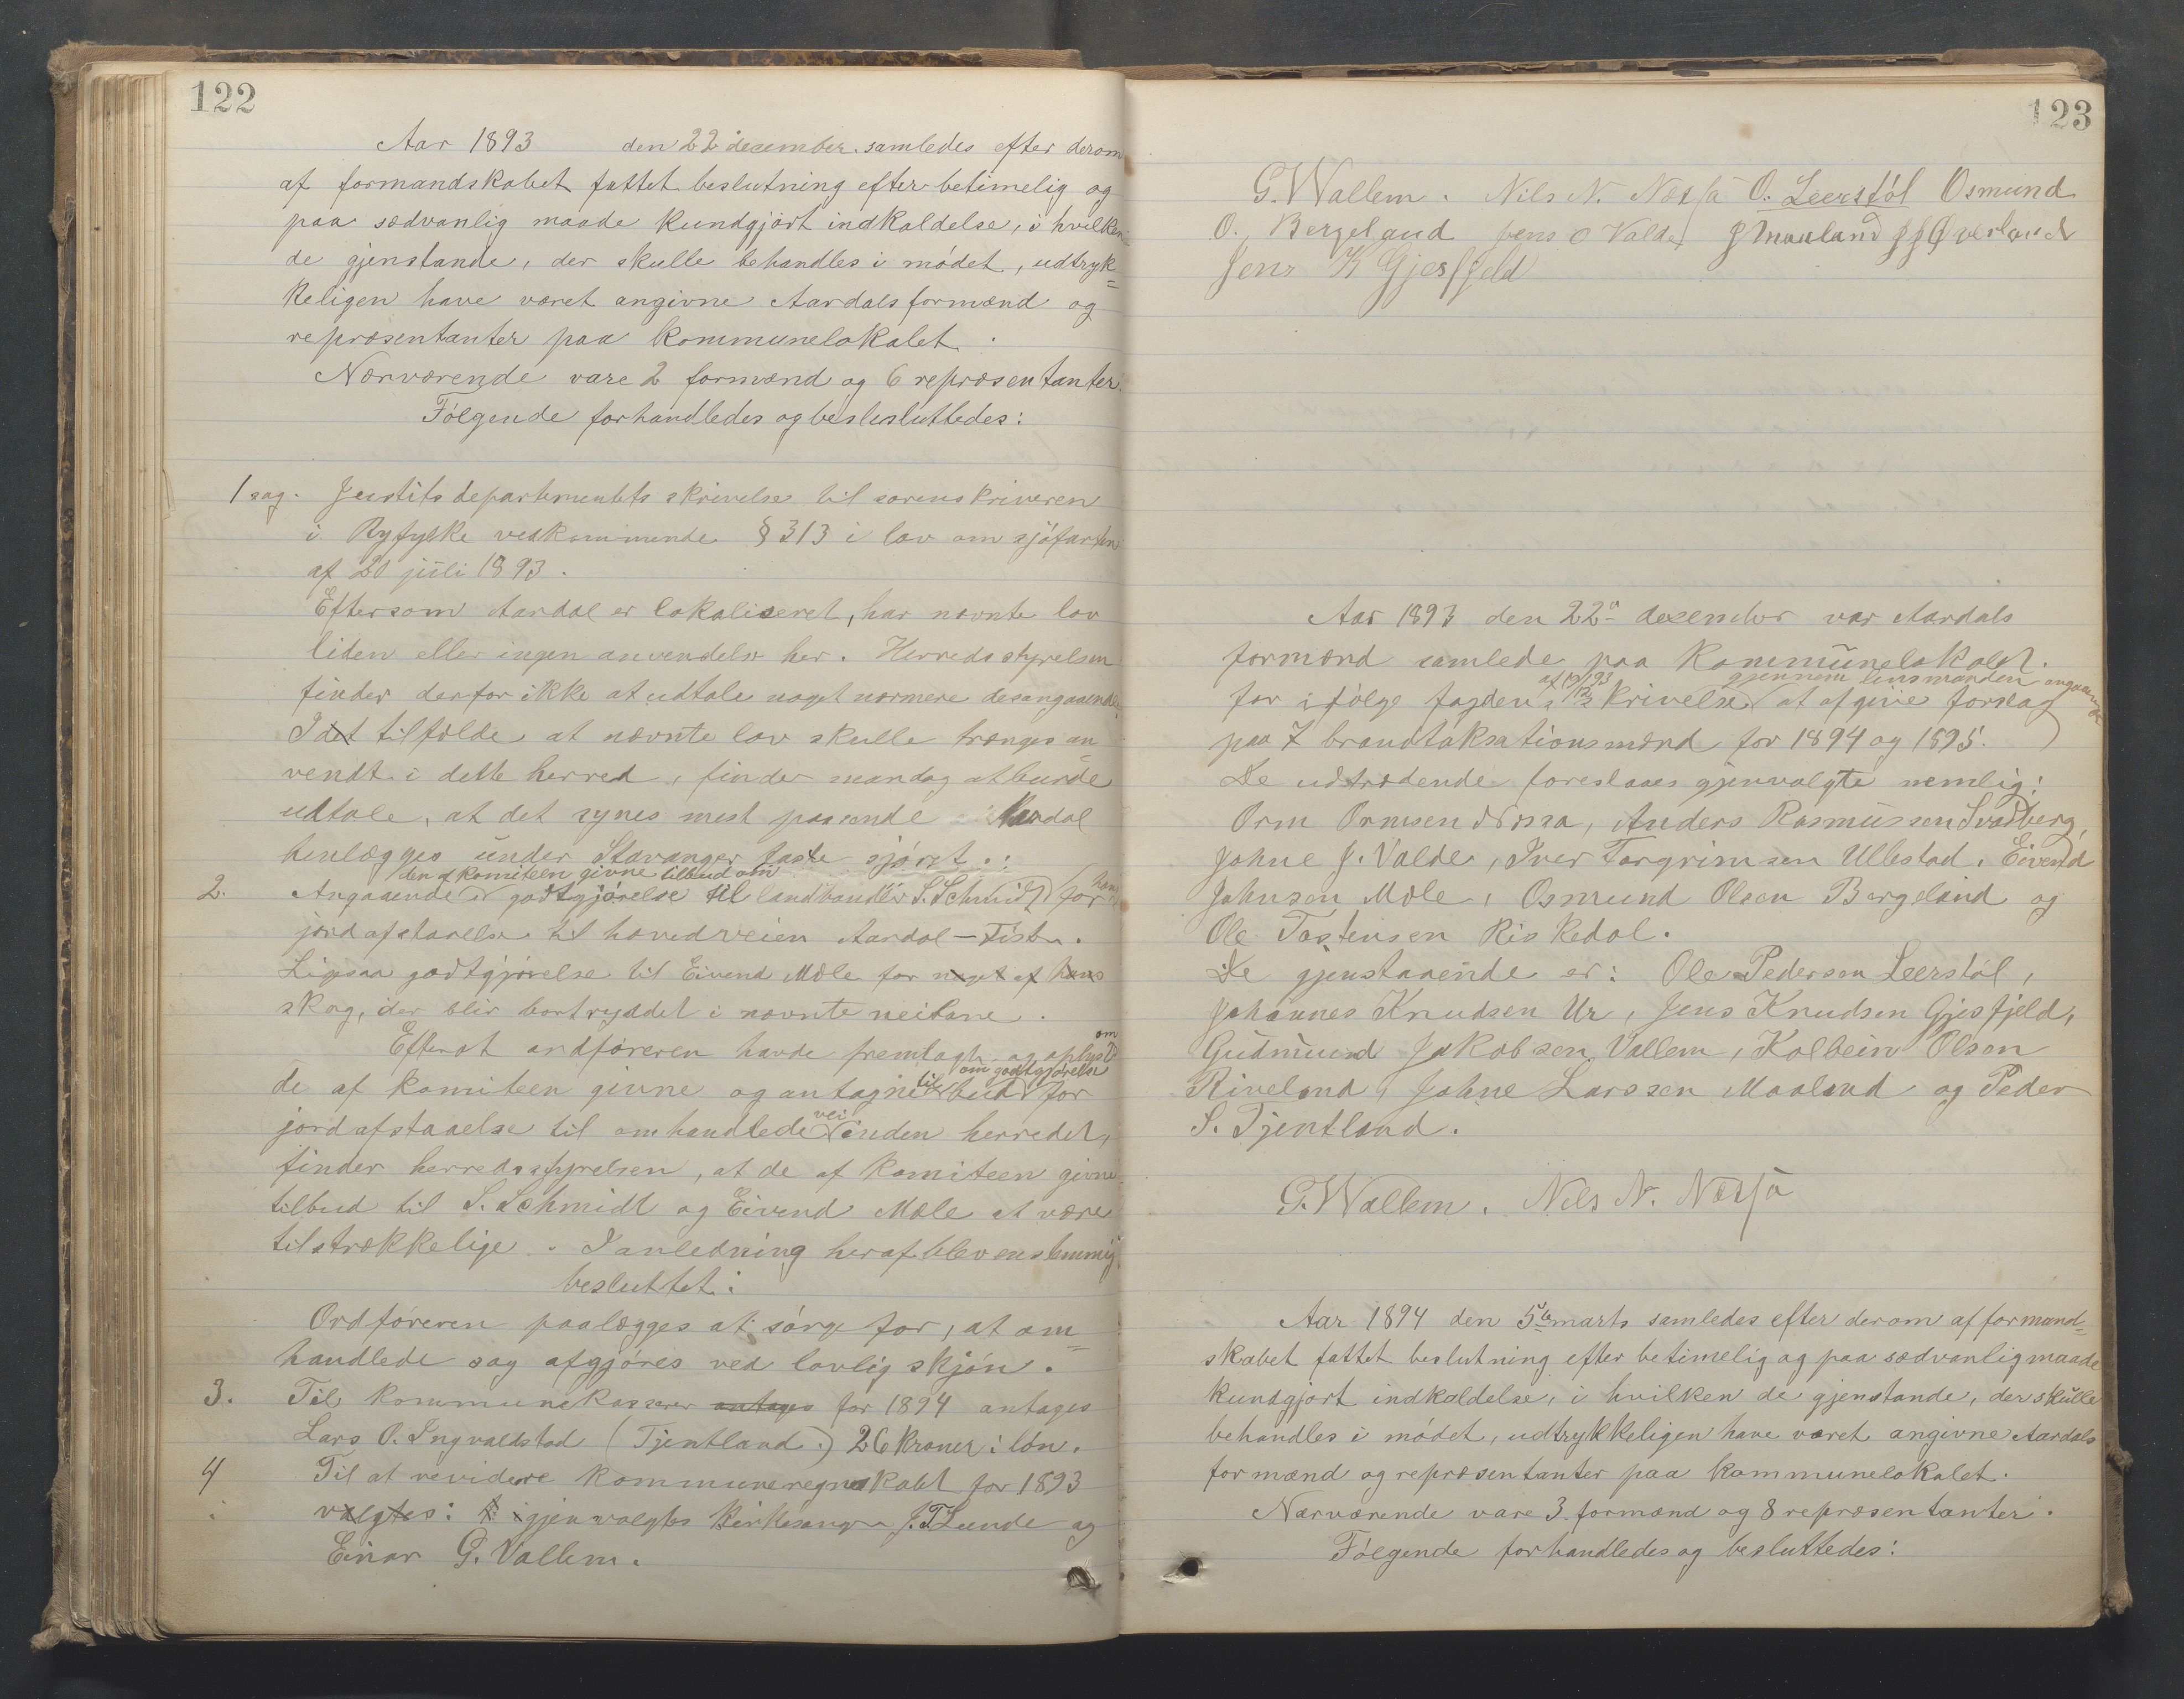 122
Aar 1893 den 22 december samledes efter derom
af formandskabet fattet beslutning efter betimelig og
paa sædvanlig maade kundgjort indkaldelse, i hvilken
de gjenstande, der skulle behandles i mödet, udtryk=
keligen have været angivne Aardals formænd og
repræsentanter paa kommunelokalet.
Nærværende vare 2 formænd og 6 repræsentanter.
Fölgende forhandledes og beslusluttedes:
1 sag. Justitsdepartementets skrivelse til sorenskriveren
i Ryfylke vedkommende § 313 i lov om sjöfarten
af 20 juli 1893.
Eftersom Aardal er lokaliseret, har nævnte lov
liden eller ingen anvendelse her. Herredsstyrelsen
finder derfor ikke at udtale noget nærmere desangaaende.
I det tilfælde at nævnte lov skulle trænges an
vendt i dette herred, finder man dog at burde
udtale, at det synes mest passende Aardal
henlægges under Stavanger faste sjöret.
den af komiteen givne tilbud om
2. Angaaende godtgjörelse til landhandler S. Schmidt for
jordafstaaelse til hovedveien Aardal - Fister.
Ligesaa godtgjörelse til Eivend Mæle for noget af hans
skog, der blir bortryddet i nævnte veilane.
Efterat ordföreren havde fremlagt og oplyst om
de af komiteen givne og antagne tilbud om godtgjörelse for
jordafstaaelse til omhandlede vei inden herredet,
finder herredsstyrelsen, at de af komiteen givne
tilbud til S. Schmidt og Eivend Mæle at være
tilstrækkelige. I anledning heraf blev enstemmig
besluttet:
Ordföreren paalægges at sörge for, at om=
handlede sag afgjöres ved lovlig skjön.
3. Til kommunekasserer antages for 1894 antages
Lars O. Ingvaldstad (Tjentland.) 26 kroner i lön.
4 Til at revidere kommuneregnskabet for 1893
valgtes: igjenvalgtes kirkesanger J. T. Lunde og
Einar G. Vallem.
123
G. Wallem. Nils N. Næssa O. Leerstöl Osmund
O. Bergeland Jens O Valde J Maaland J J Qverland
Jens K Gjesfjeld
Aar 1893 den 22de december var Aardals
formænd samlede paa Kommunelokalet.
af 12/12 93 gjennem lensmanden angaaende
for ifölge fogdens skrivelse at afgive forslag
paa 7 brandtaksationsmænd for 1894 og 1895.
De udtrædende foreslaaes gjenvalgte nemlig:
Orm Ormsen Nessa, Anders Rasmussen Svadberg,
Johne J. Valde, Iver Torgrimsen Ullestad, Eivend
Johnsen Mæle, Osmund Olsen Bergeland og
Ole Tostensen Riskedal.
De gjenstaaende er: Ole Pedersen Leerstöl,
Johannes Knudsen Ur, Jens Knudsen Gjesfjeld,
Gudmund Jakobsen Vallem, Kolbein Olson
Riveland, Johne Larssen Maaland og Peder
S. Tjentland.
G. Wallem. Nils N. Næssa
Aar 1894 den 5te marts samledes efter derom af formænd=
skabet fattet beslutning efter betimelig og paa sædvanlig maade
kundgjort indkaldelse, i hvilken de gjenstande, der skulle
behandles i mödet, udtrykkeligen have været angivne Aardals
formænd og repræsentanter paa kommunelokalet.
Nærværende vare 3 formænd og 8 repræsentanter.
Fölgende forhandledes og besluttedes: